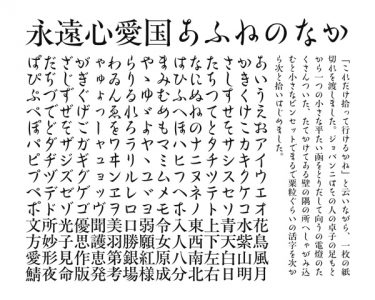 永遠心愛国あふねのなか
「これだけ拾って行けるかね」と云いながら、一枚の紙
切れを渡しました。ジョバンニはその人の卓子の足もと
から一つの小さな平たい函をとりだして向うの電燈のた
くさんついた、たてかけてある壁の隅の所へしゃがみ込
むと小さなピンセットでまるで粟粒ぐらいの活字を次か
ら次と拾いはじめました。
あいうえおアイウエオ花鳥風月
かきくけこカキクケコ水紫山明
さしすせそサシスセソ青天白日
たちつてとタチツテト上下左右
なにぬねのナニヌネノ東西南北
はひふへほハヒフヘホ入人八分
まみむめもマミムメモ令女原成
やゝゆゞよヤヽユヾヨ弱願紅様
らりるれろラリルレロ口勝銀場
わゐんゑをワヰンヱヲ美羽第考
ゃゅょっーャュョッヴ聞護恵発
がぎぐげごガギグゲゴ優思作版
ざじずぜぞザジズゼゾ光子見命
だぢづでどダヂヅデド所妙形夜
ばびぶべぼパピプペポ文方愛鯖